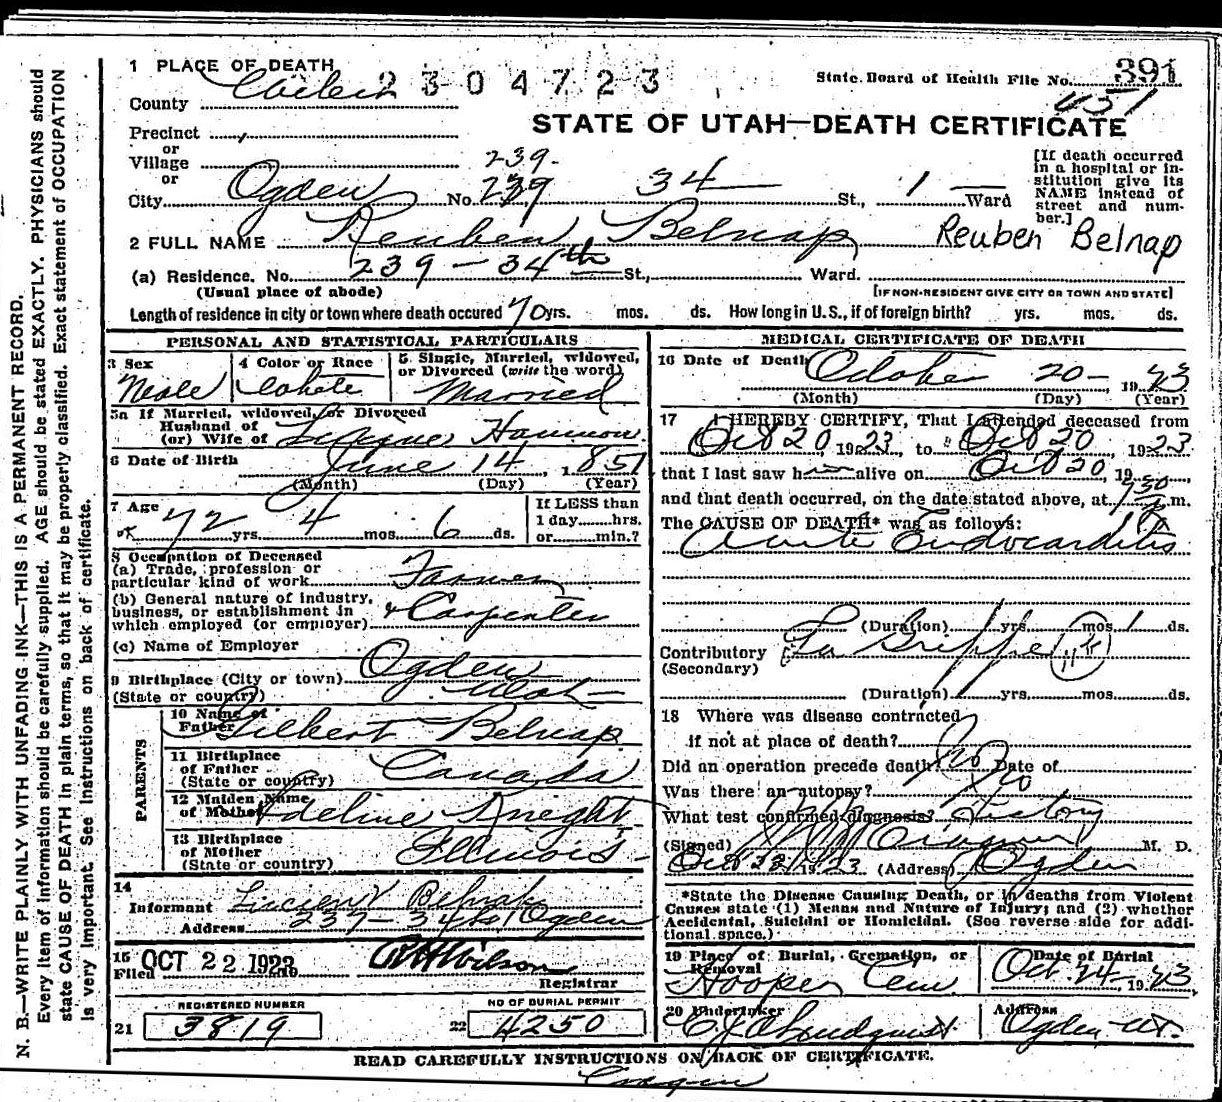 1 PLACE OF DEATH
2304723
State Board of Health File No. 391
County Weber
451
STATE OF UTAH—DEATH CERTIFICATE
Precinct
or
Village
239
or
City Ogden No. 239 34 St., 1 Ward
[If death occurred in a hospital or institution give its NAME instead of street and number.]
2 FULL NAME Reuben Belnap Reuben Belnap
(a) Residence. No. 239 - 34th St., Ward.
(Usual place of abode) [IF NON-RESIDENT GIVE CITY OR TOWN AND STATE]
Length of residence in city or town where death occured 70 yrs. mos. ds. How long in U. S., if of foreign birth? yrs. mos. ds.
PERSONAL AND STATISTICAL PARTICULARS
3 Sex
Male
4 Color or Race
White
5 Single, Married, widowed,
or Divorced (write the word)
Married
5a If Married, widowed, or Divorced
Husband of
(or) Wife of Hammon
6 Date of Birth June 14, 1851
(Month) (Day) (Year)
7 Age
72 yrs. 4 mos. 6 ds.
If LESS than
1 day hrs.
or min.?
8 Occupation of Deceased
(a) Trade, profession or
particular kind of work Farmer
(b) General nature of industry,
business, or establishment in
which employed (or employer) & Carpenter
(c) Name of Employer
9 Birthplace (City or town) Ogden
(State or country) Utah
PARENTS
10 Name of
Father Gilbert Belnap
11 Birthplace
of Father
(State or country) Canada
12 Maiden Name
of Mother Adeline Knight
13 Birthplace
of Mother
(State or country) Illinois
14
Informant Belnap
Address 239-34 St, Ogden
15
Filed OCT 22 1923 Wilson
Registrar
REGISTERED NUMBER
21 3819
NO OF BURIAL PERMIT
22 4250
MEDICAL CERTIFICATE OF DEATH
16 Date of Death October 20- 1923
(Month) (Day) (Year)
17 I HEREBY CERTIFY, That I attended deceased from
Oct 20, 1923, to Oct 20, 1923
that I last saw him alive on Oct 20, 19
and that death occurred, on the date stated above, at 730 m.
The CAUSE OF DEATH* was as follows:
Acute Endocarditis
(Duration) yrs. mos. 1 ds.
Contributory La Grippe
(Secondary)
(Duration) yrs. mos. ds.
18 Where was disease contracted
if not at place of death?
Did an operation precede death? No Date of
Was there an autopsy? No
What test confirmed diagnosis? History
(Signed) M. D.
Oct 22, 1923 (Address) Ogden
*State the Disease Causing Death, or in deaths from Violent
Causes state (1) Means and Nature of Injury; and (2) whether
Accidental, Suicidal or Homicidal. (See reverse side for addi-
tional space.)
19 Place of Burial, Cremation, or
Removal
Hooper Cem.
Date of Burial
Oct 24, 1923
20 Undertaker
Lundquist
Address
Ogden Ut.
READ CAREFULLY INSTRUCTIONS ON BACK OF CERTIFICATE.
N. B.—WRITE PLAINLY WITH UNFADING INK—THIS IS A PERMANENT RECORD.
Every item of information should be carefully supplied. AGE should be stated EXACTLY. PHYSICIANS should
state CAUSE OF DEATH in plain terms, so that it may be properly classified. Exact statement of OCCUPATION
is very important. See Instructions on back of certificate.